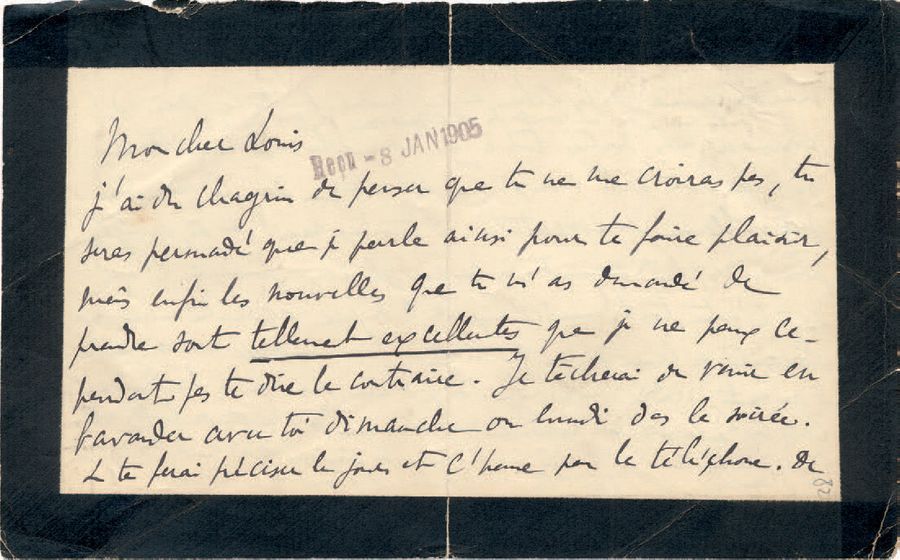 Mon cher Louis
Recd - 8 JAN 1905
j'ai du chagrin de penser que tu ne me croiras pas, tu
seras persuadé que je parle ainsi pour te faire plaisir,
mais enfin les nouvelles que tu m'as demandé de
prendre sont tellement excellentes que je ne peux ce-
pendant pas te dire le contraire. Je tâcherai de venir en
bavarder avec toi dimanche ou lundi dans la soirée.
Je te ferai préciser le jour et l'heure par le téléphone. De
28